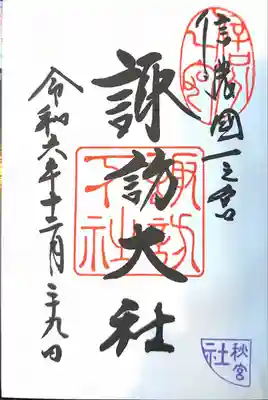 信濃國一之宮
諏訪大社
令和六年十二月二十九日
諏訪
大社
秋宮
社